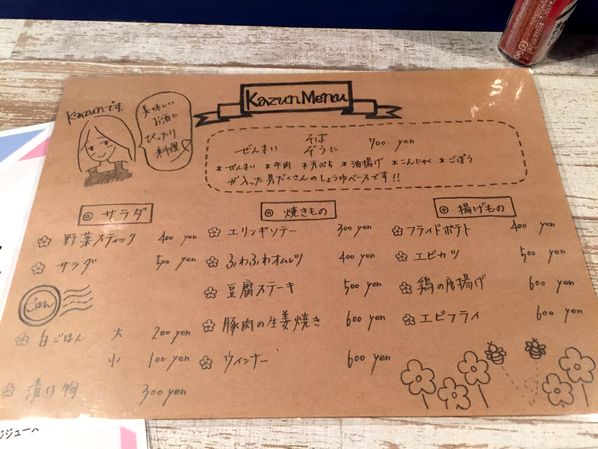 Kazunです。
美味しい
お酒に
ぴったり
料理♡
Kazun Menu
ぜんまい そば ぞうに 700 yen
*ぜんまい *牛肉 *かぶち *油揚げ *こんにゃく *ごぼう
が入った具だくさんのしょうゆベースです!!
◎ サラダ
野菜スティック 400 yen
サラダ 500 yen
ごはん
白ごはん 大 200 yen
小 100 yen
漬け物 300 yen
◎ 焼きもの
エリンギソテー 300 yen
ふわふわオムレツ 400 yen
豆腐ステーキ 500 yen
豚肉の生姜焼き 600 yen
ウインナー 600 yen
◎ 揚げもの
フライドポテト 400 yen
エビカツ 500 yen
鶏の唐揚げ 600 yen
エビフライ 600 yen
ジジュース